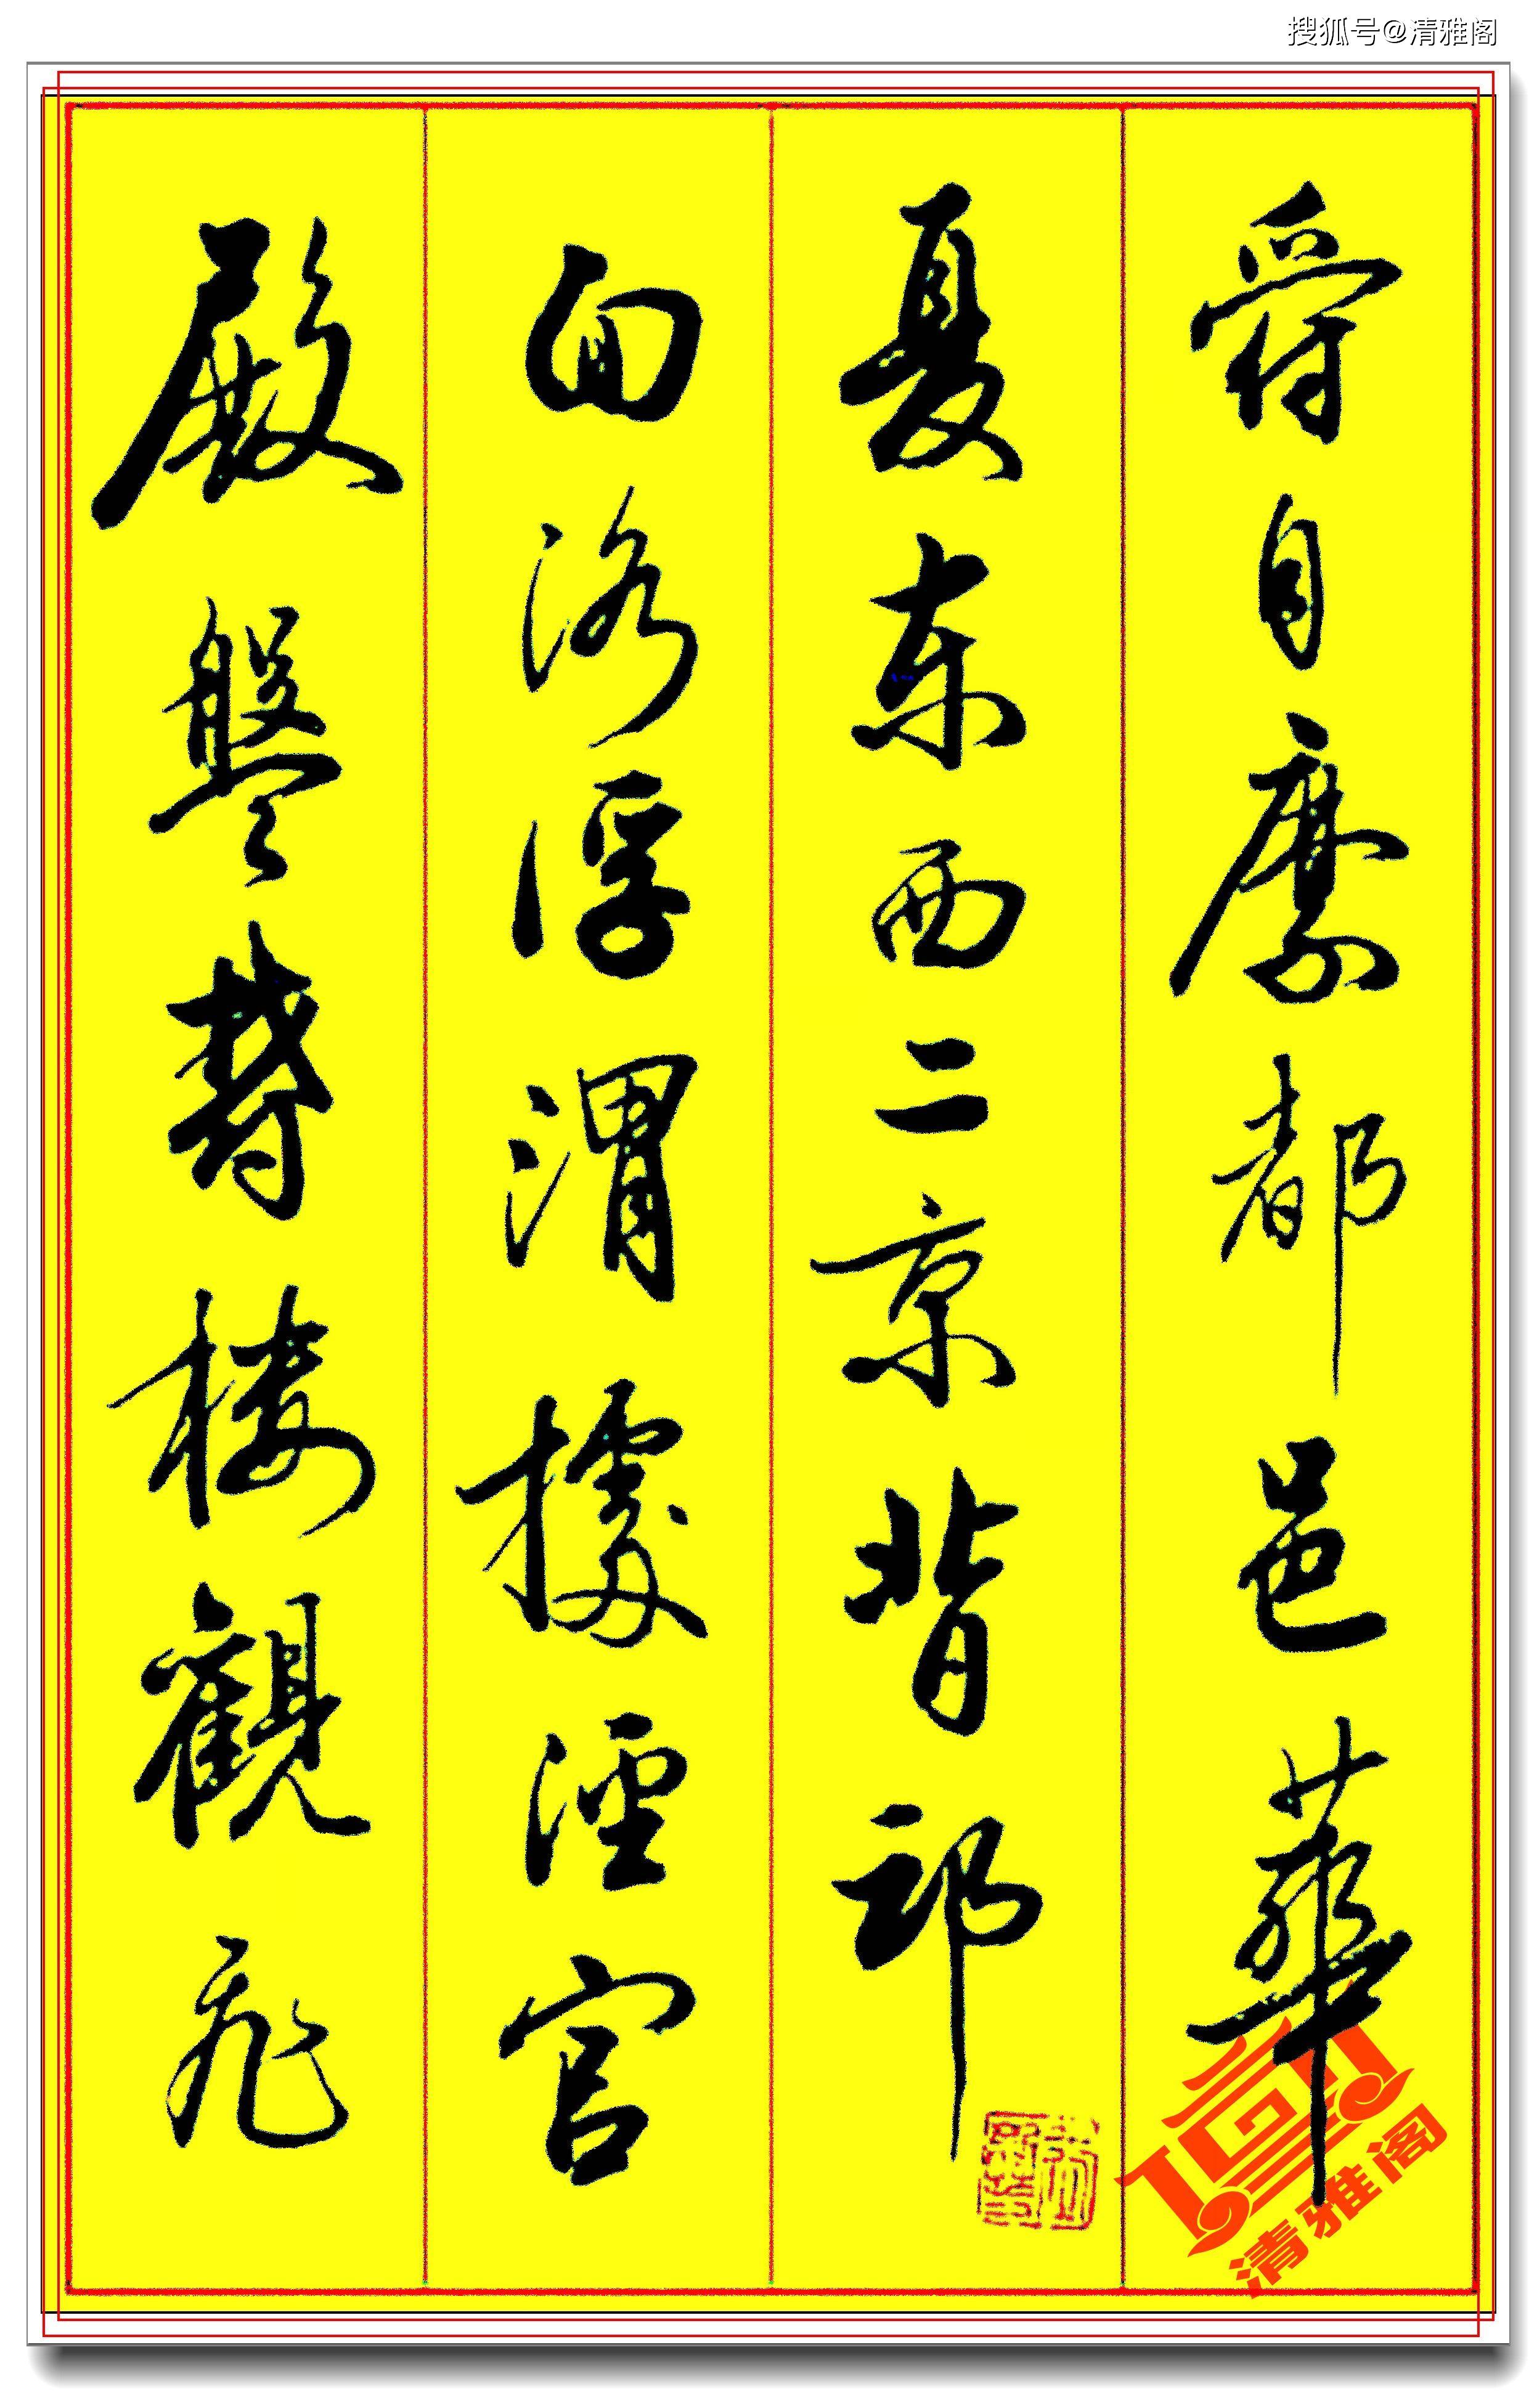 搜狐号@清雅阁
爵自縻都邑華
夏东西二京背邙
面洛浮渭據涇宫
殿盤鬱楼觀飛
清雅阁